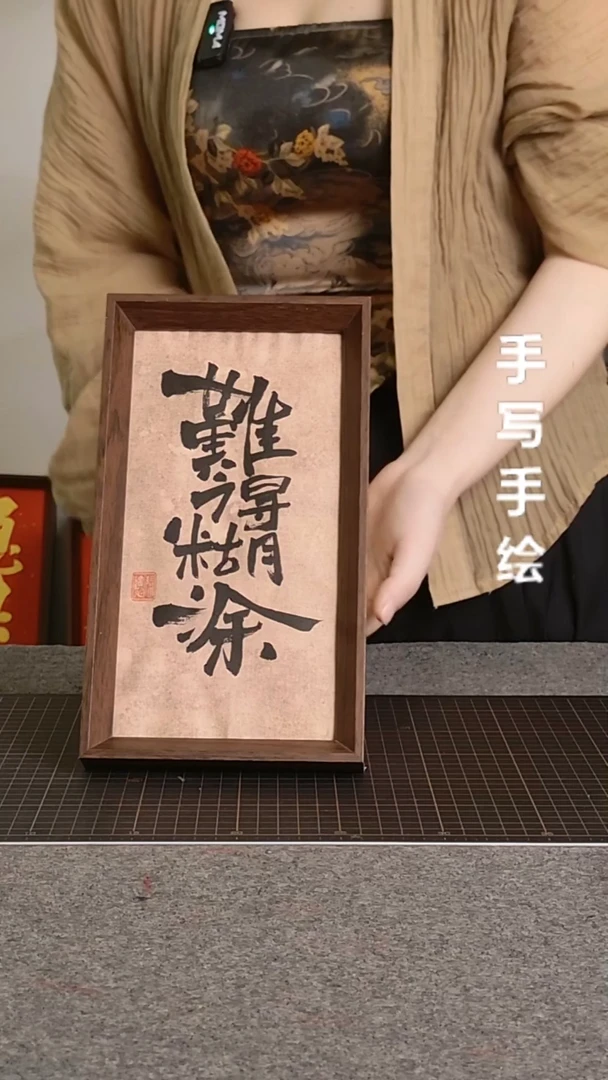 難
得
糊
涂
手写手绘